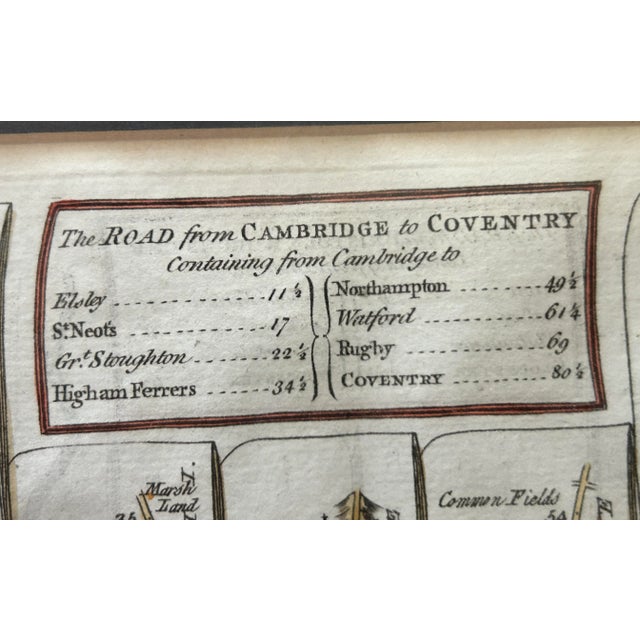 The ROAD from CAMBRIDGE to COVENTRY
Containing from Cambridge to
Elsley 11½
St. Neots 17
Grt. Stoughton 22½
Higham Ferrers 34½
Northampton 49½
Watford 61¼
Rugby 69
COVENTRY 80½
Marsh
Land
35
Common Fields
54